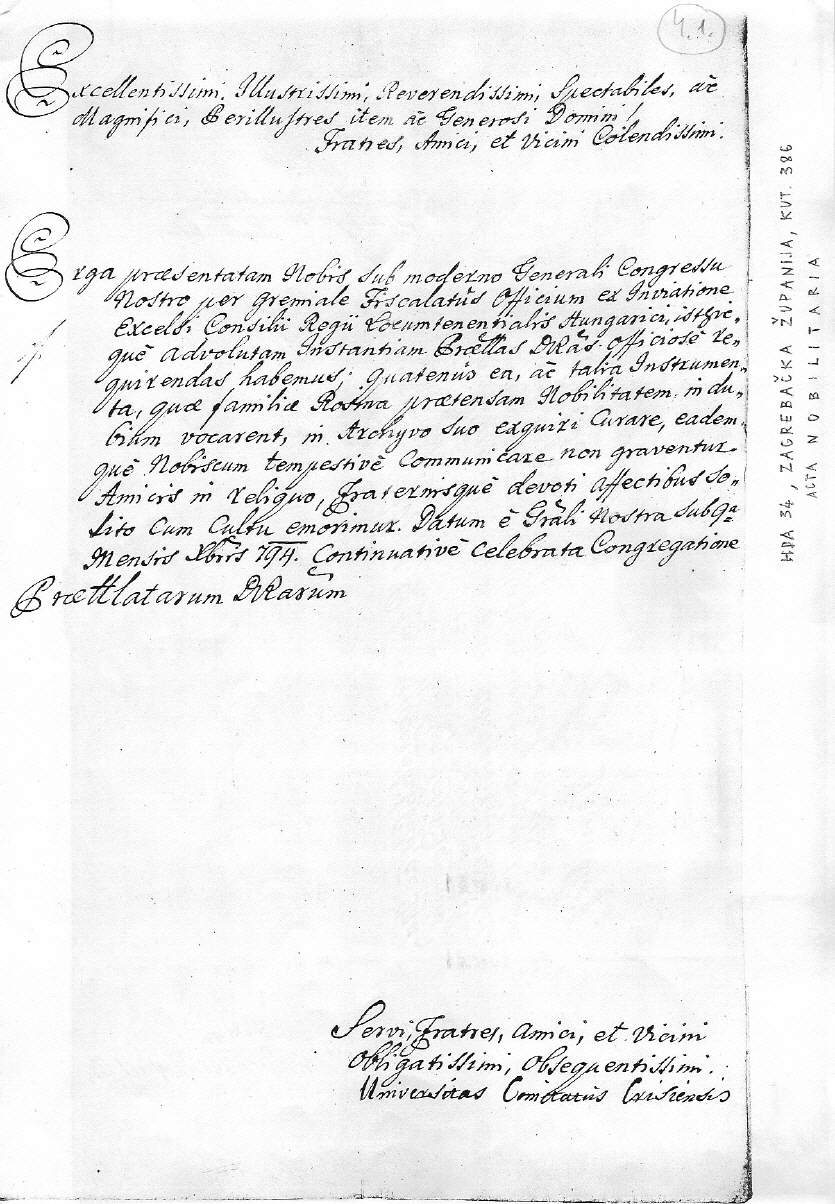 4.1.
Excellentissimi, Illustrissimi, Reverendissimi, Spectabiles, ac̃
Magnifici, Perillustres item ac̃ Generosi Domini!
Fratres, Amici, et Vicini Colendissimi.
Erga præsentatam Nobis sub moderno Generali Congressu
Nostro per gremiale Fiscalatûs Officium ex Inviatione
Excelsi Consilii Regii Locumtenentialis Hungarici, isthic-
què advolutam Instantiam Prætt̃las DVR̃as officiosè re-
quirendas habemus; quatenus ea, ac̃ talia Instrumen-
ta, quæ familiæ Rostna prætensam Nobilitatem in du-
bium vocarent, in Archyvo suo exquiri Curare, eadem-
què Nobiscum tempestivè Communicare non graventur.
Amicis in reliquo, Fraternisquè devoti affectibus so-
lito cum Cultu emorimur. Datum è Gr̃ali Nostra sub 9a
Mensis Xbris 794. Continuativè celebrata Congregatione
Prættlatarum DVRarum̃
Servi, Fratres, Amici, et Vicini
Obligatissimi, Obsequentissimi.
Universitas Comitatûs Crisiensis
HDA 34, ZAGREBAČKA ŽUPANIJA, KUT. 386
ACTA NOBILITARIA